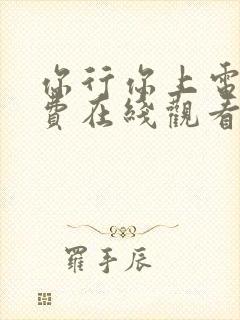 你行你上電
費在綫觀看
羅手辰